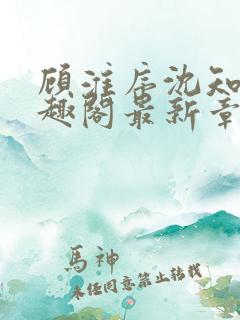 顾淮辰沈知
趣阁最新章
馬神
未任同意禁止转载